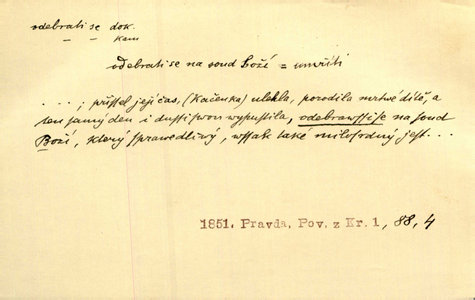 odebrati se dok.
kam
odebrati se na soud Boží = umříti
. . . .; přissel její čas, (Kačenka) ulehla, porodila mrtwé dítě, a
ten samý den i dussi swou wypustila, odebrawssi se na soud
Boží, který sprawedliwý, wssak také milosrdný jest . . .
1851. Pravda, Pov. z Kr. 1, 88, 4